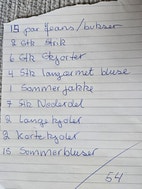 15 par Jeans/bukser
8 Stk Strik
6 Stk Skjorter
4 Stk langærmet bluse
1 Sommerjakke
7 Stk Nederdel
2 Lange kjoler
8 Korte kjoler
15 Sommerbluser
54